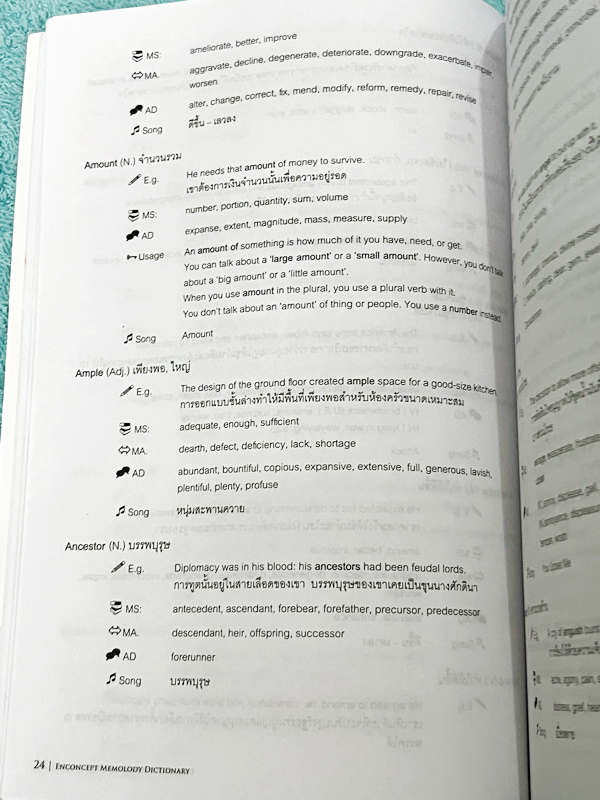 MS: ameliorate, better, improve
MA. aggravate, decline, degenerate, deteriorate, downgrade, exacerbate, impair,
worsen
AD alter, change, correct, fix, mend, modify, reform, remedy, repair, revise
Song ดีขึ้น – เลวลง
Amount (N.) จำนวนรวม
E.g. He needs that amount of money to survive.
เขาต้องการเงินจำนวนนั้นเพื่อความอยู่รอด
MS: number, portion, quantity, sum, volume
AD expanse, extent, magnitude, mass, measure, supply
Usage An amount of something is how much of it you have, need, or get.
You can talk about a 'large amount' or a 'small amount'. However, you don't talk
about a 'big amount' or a 'little amount'.
When you use amount in the plural, you use a plural verb with it.
You don't talk about an 'amount' of thing or people. You use a number instead
Song Amount
Ample (Adj.) เพียงพอ, ใหญ่
E.g. The design of the ground floor created ample space for a good-size kitchen.
การออกแบบชั้นล่างทำให้มีพื้นที่เพียงพอสำหรับห้องครัวขนาดเหมาะสม
MS: adequate, enough, sufficient
MA. dearth, defect, deficiency, lack, shortage
AD abundant, bountiful, copious, expansive, extensive, full, generous, lavish,
plentiful, plenty, profuse
Song หนุ่มสะพานควาย
Ancestor (N.) บรรพบุรุษ
E.g. Diplomacy was in his blood: his ancestors had been feudal lords.
การทูตนั้นอยู่ในสายเลือดของเขา บรรพบุรุษของเขาเคยเป็นขุนนางศักดินา
MS: antecedent, ascendant, forebear, forefather, precursor, predecessor
MA. descendant, heir, offspring, successor
AD forerunner
Song บรรพบุรุษ
24 | ENCONCEPT MEMOLODY DICTIONARY